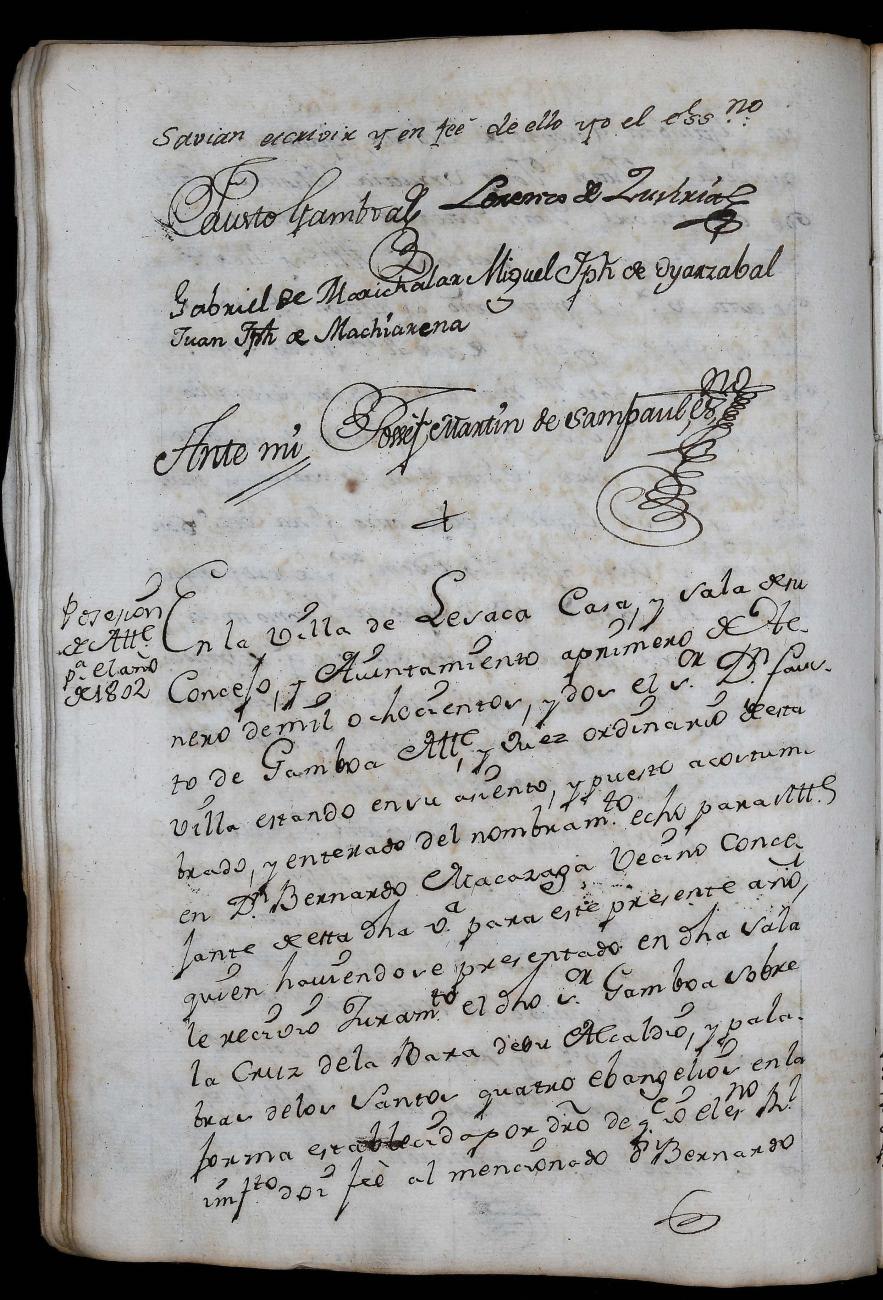 Savian escrivir y en feé de ello yo el ess.no
Fausto Gamboa Lorenzo de Zubiria
Gabriel de Marichalar Miguel Jph de Oyarzabal
Juan Jph de Machiarena
Ante mi Jossef Martin de Sampaul, es.no
Posesion
de Alle.
p.a el año
de 1802
En la villa de Lesaca Casa, y sala de su
Concejo, y Aiuntamiento a primero de He-
nero de mil ochocientos, y dos el s.or D.n Faus-
to de Gamboa Alle, y Juez ordinario de esta
villa estando en su asiento, y puesto acostum-
brado, y enterado del nombram.to echo para Alle
en D.n Bernardo Macazaga vecino Conce-
jante de esta dha v.a para este presente año,
quien haviendose presentado en dha sala
le recivio Juram.to el dho s.or Gamboa sobre
la Cruz de la Bara de su Alcaldio, y pala-
bras de los Santos quatro ebangelios en la
forma establecida por dro de q.e io el es.no R.l
imfto doi feé al mencionado D.n Bernardo